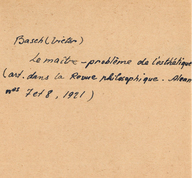 Basch (Victor)
Le maître-problème de l'esthétique
(art. dans la Revue philosophique. Alcan
nos 7 et 8, 1921)